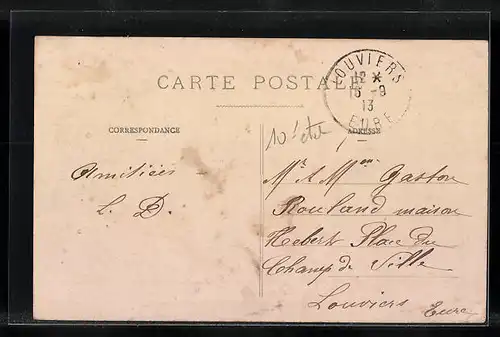 CARTE POSTALE
LOUVIERS
12 *
15 -9
13
EURE
CORRESPONDANCE
ADRESSE
Amitiées
L. D.
Mr & Mme Gaston
Rouland maison
Hebert Place du
Champ de Ville
Louviers Eure